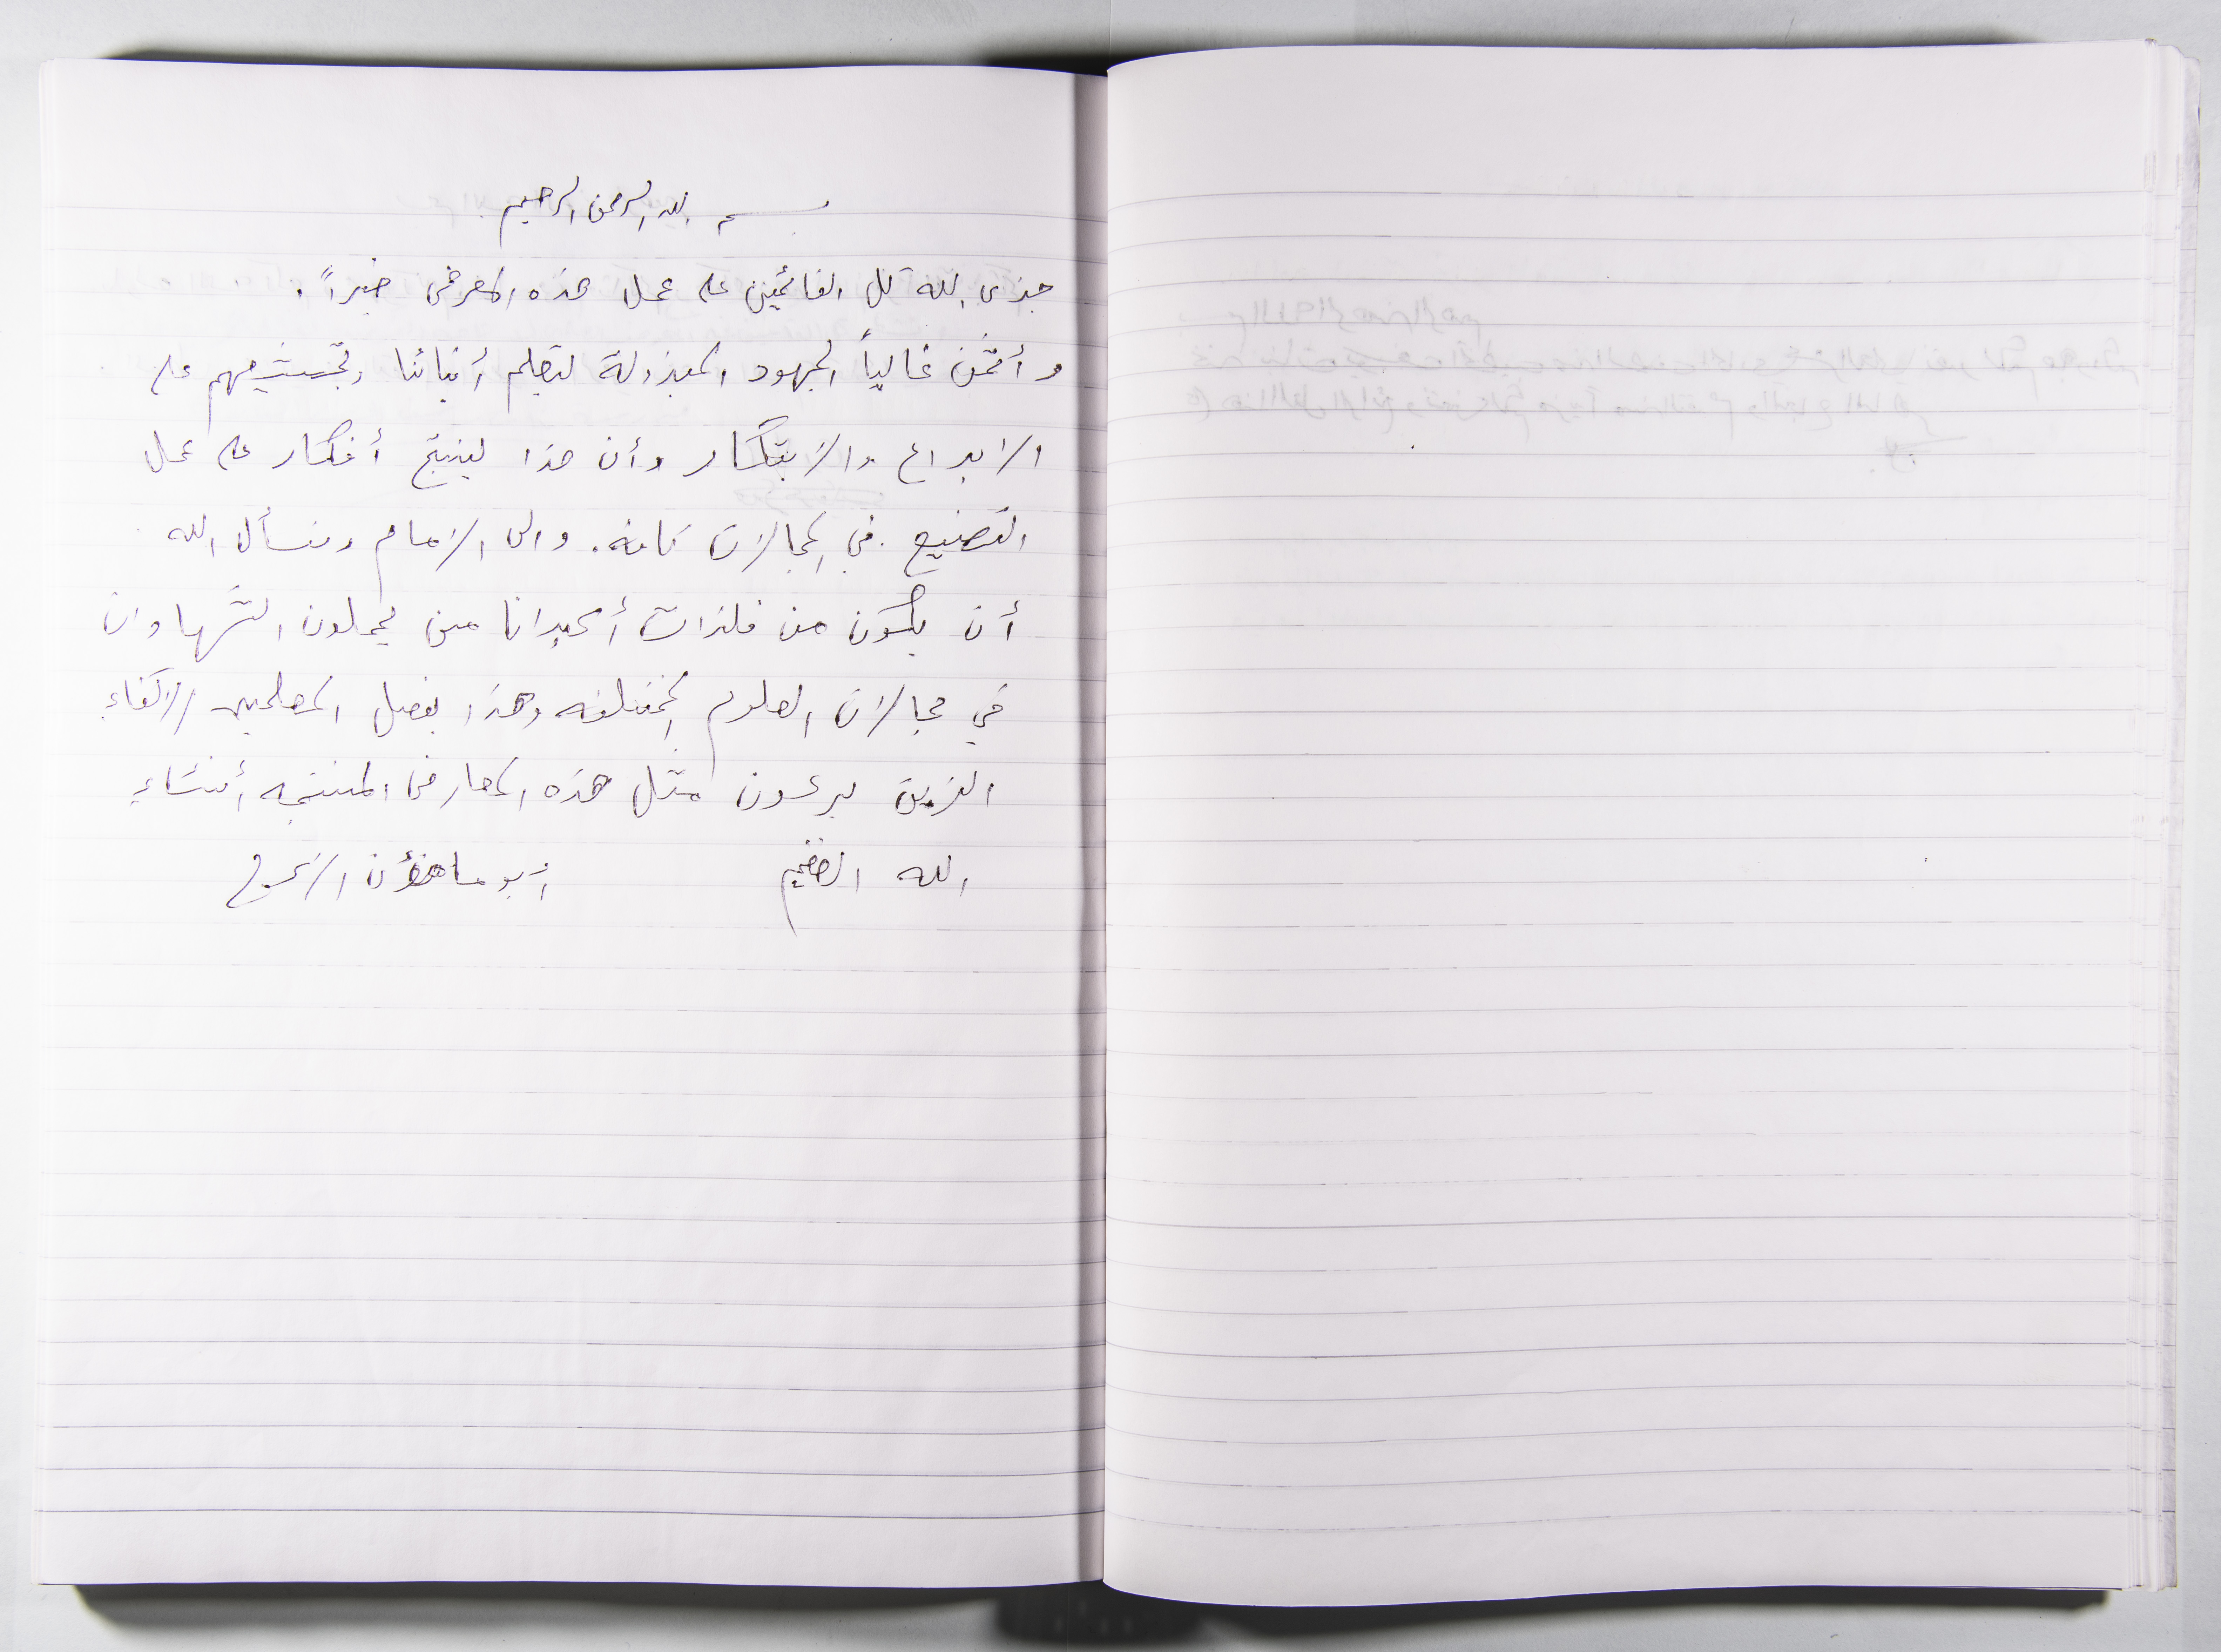 بسم الله الرحمن الرحيم
جزى الله كل القائمين على عمل هذه المعرض خيراً.
وأثمن غالياً الجهود المبذولة لتعليم أبنائنا وتشجيعهم على
الابداع والابتكار وأن هذا لينتج أفكار على عمل
التصنيع في المجالات كافة. والى الامام ونسأل الله
أن يكون من فلذات أكبدانا من يحملون الشهادات
في مجالات العلوم المختلفه وهذا بفضل المعلمين الاكفاء
الذين يرعون مثل هذه المعارض المنتجه أنشاء
الله العظيم